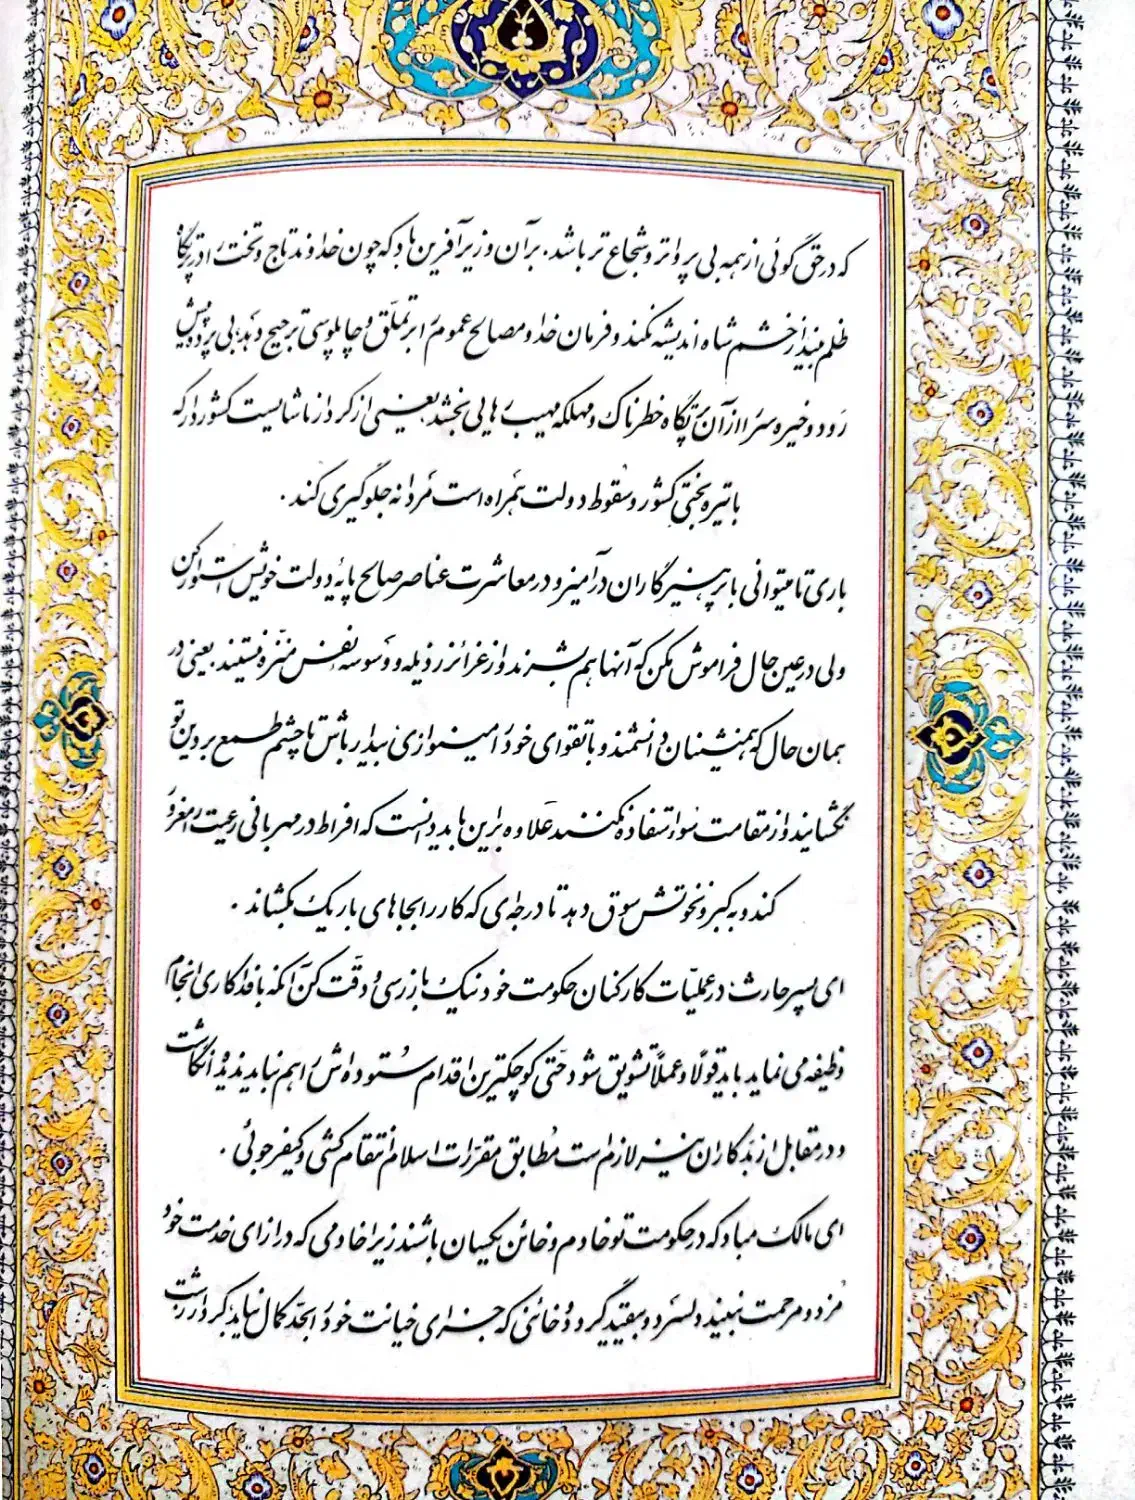 که در حق گوئی از همه بی پرواتر و شجاع تر باشد. بر آن وزیر آفرین باد که چون خداوند تاج و تخت را در پرتگاه
ظلم بیند از خشم شاه اندیشه نکند و فرمان خدا و مصالح عموم را بر تملّق و چاپلوسی ترجیح دهد بی پرده پیش
رود و خیره سر را از آن پرتگاه خطرناک و مهلکه مهیب رهایی بخشد یعنی از کردار ناشایست کشوردار که
با تیره بختی کشور و سقوط دولت همراه است مردانه جلوگیری کند.
باری تا میتوانی با پرهیزگاران درآمیز و در معاشرت عناصر صالح پایهٔ دولت خویش استوار کن
ولی در عین حال فراموش مکن که آنها هم بشرند و از غرائز رذیله و وسوسه نفس منزّه نیستند. یعنی در
همان حال که همنشینان دانشمند و با تقوای خود را مینوازی بیدار باش تا چشم طمع بر دین تو
نگشایند و از مقامت سوء استفاده نکنند علاوه براین ها باید دانست که افراط در مهربانی رعیت را مغرور
کند و به کبر و نخوتش سوق دهد تا درجه ای که کار را بجاهای باریک بکشاند.
ای پسر حارث: در عملیّات کارکنان حکومت خود نیک بازرسی و دقّت کن آنکه با فداکاری انجام
وظیفه می نماید باید قولاً و عملاً تشویق شود حتی کوچکترین اقدام ستوده اش را هم نباید ندیده انگاشت
و در مقابل از بدکاران نیز لازم است مطابق مقررات اسلام انتقام کشی و کیفر جوئی.
ای مالک مباد که در حکومت تو خادم و خائن یکسان باشند زیرا خادمی که در ازای خدمت خود
مزد و مرحمت نبیند دلسرد و بیقید گردد و خائنی که جزای خیانت خود را بحد کمال نیابد بکردار زشت